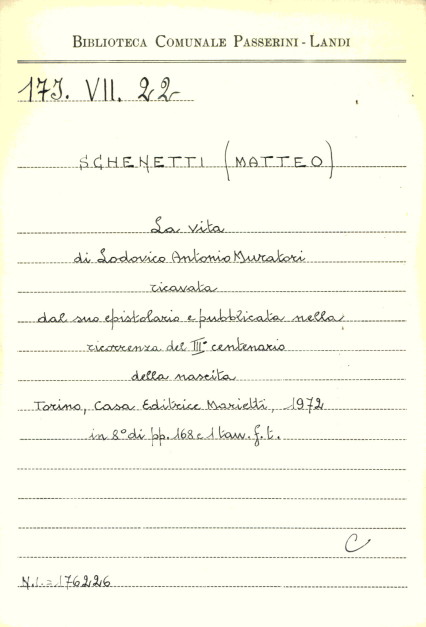 BIBLIOTECA COMUNALE PASSERINI - LANDI
17J. VII. 22
SCHENETTI (MATTEO)
La vita
di Lodovico Antonio Muratori
ricavata
dal suo epistolario e pubblicata nella
ricorrenza del III° centenario
della nascita
Torino, Casa Editrice Marietti, 1972
in 8° di pp. 168 e 1 tav. f. t.
C
N.I. = 176226